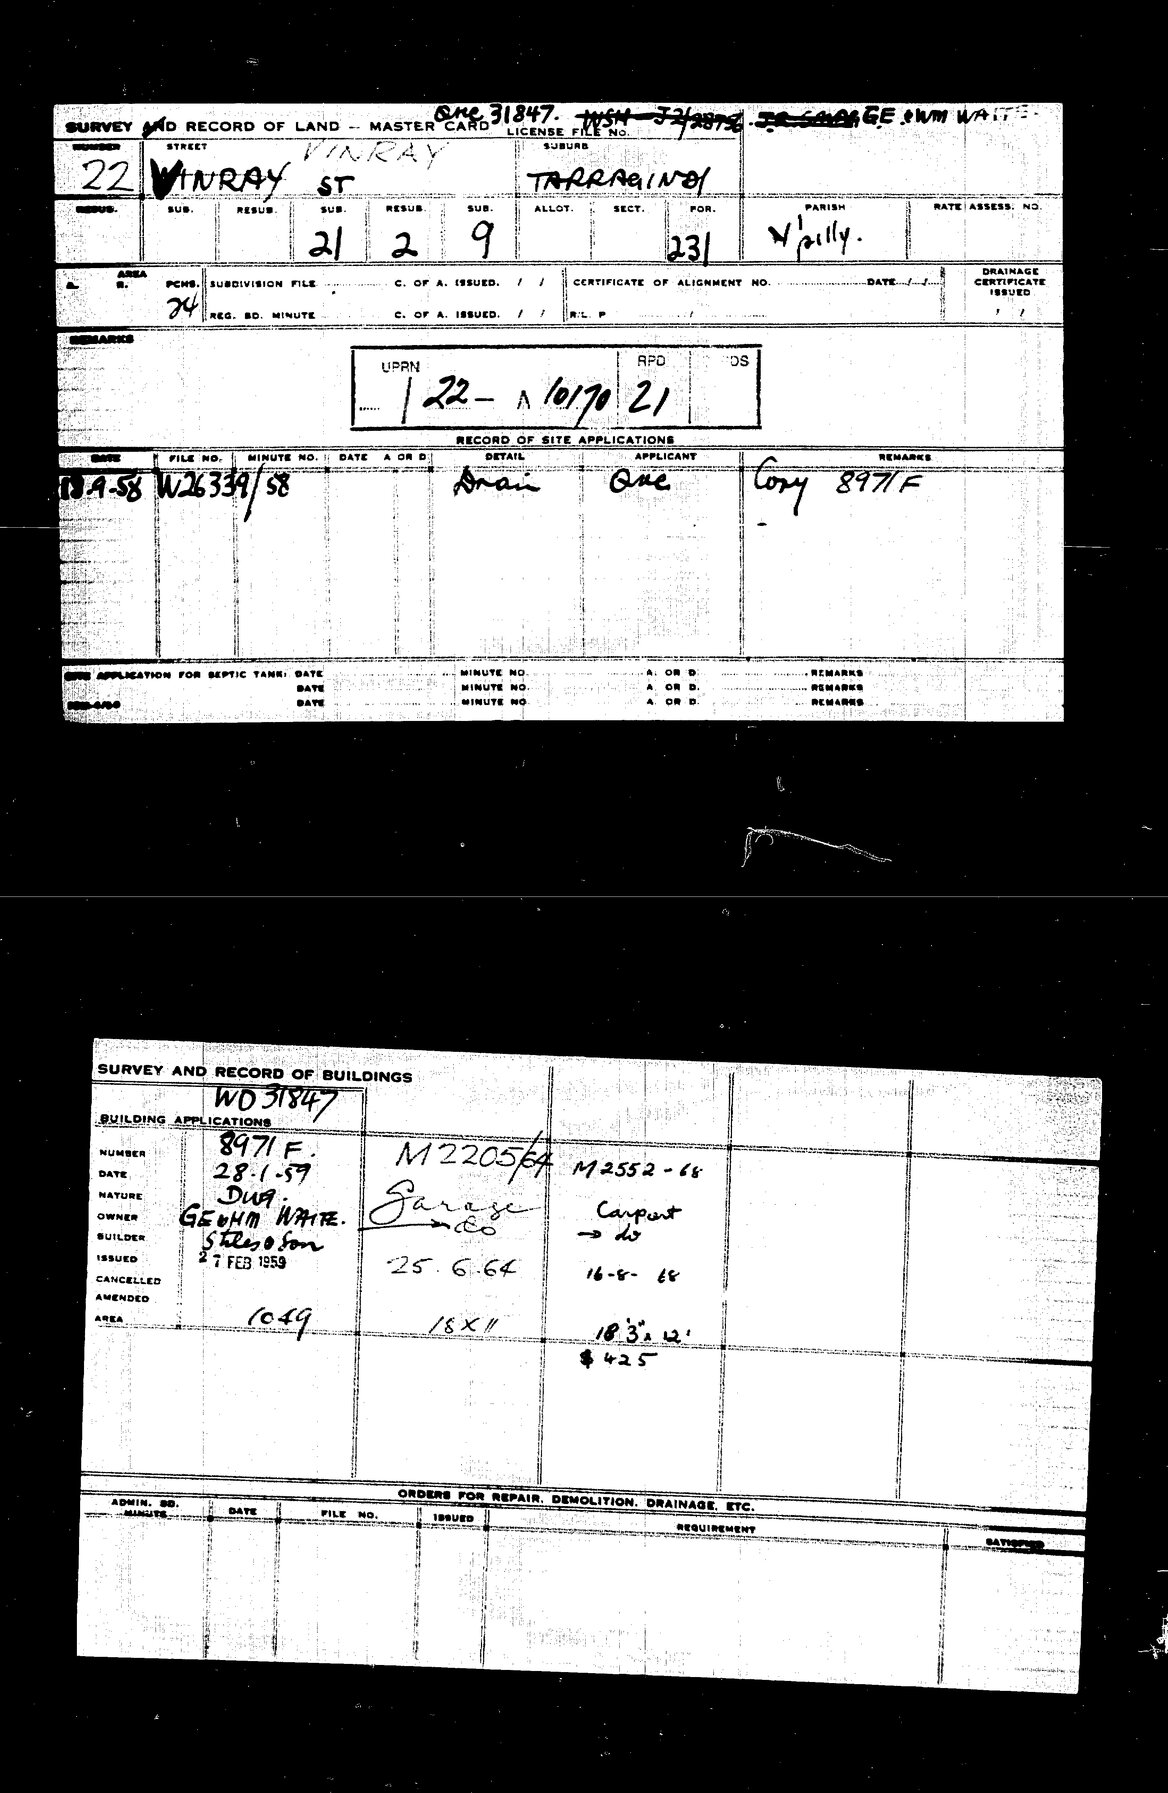 Que 31847. GE & WM WAITE
SURVEY AND RECORD OF LAND -- MASTER CARD LICENSE FILE No.
NUMBER STREET VINRAY SUBURB
22 VINRAY ST TARRAGINDI
RESUB. SUB. RESUB. SUB. RESUB. SUB. ALLOT. SECT. POR. PARISH RATE ASSESS. NO.
21 2 9 231 Y'pilly.
AREA
A. R. PCHS. SUBDIVISION FILE C. OF A. ISSUED. / / CERTIFICATE OF ALIGNMENT NO. DATE / / DRAINAGE CERTIFICATE ISSUED
24 REG. BD. MINUTE C. OF A. ISSUED. / / R.L. P / / /
REMARKS
UPRN RPD DS
1 22- A 10170 21
RECORD OF SITE APPLICATIONS
DATE FILE NO. MINUTE NO. DATE A OR D. DETAIL APPLICANT REMARKS
18.9.58 W26339/58 Drain Que Copy 8971F
SITE APPLICATION FOR SEPTIC TANK: DATE MINUTE NO. A. OR D. REMARKS
DATE MINUTE NO. A. OR D. REMARKS
DATE MINUTE NO. A. OR D. REMARKS
SURVEY AND RECORD OF BUILDINGS
WD 31847
BUILDING APPLICATIONS
NUMBER 8971 F. M2205/64 M2552-68
DATE 28.1.59
NATURE Dwg. Garage Carport
OWNER GE & HM WAITE. → do → do
BUILDER Stiles & Son
ISSUED 27 FEB 1959 25.6.64 16-8-68
CANCELLED
AMENDED
AREA 1049 18 X 11 18'3" x 12'
$425
ORDERS FOR REPAIR, DEMOLITION, DRAINAGE, ETC.
ADMIN. BD. MINUTE DATE FILE NO. ISSUED REQUIREMENT SATISFIED